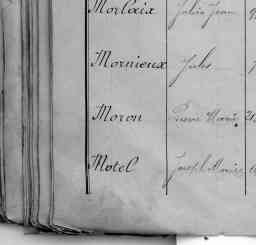 Morlaix Julie Jean
Mornieux Jules
Moron Pierre Marie 21
Motel Joseph Marie